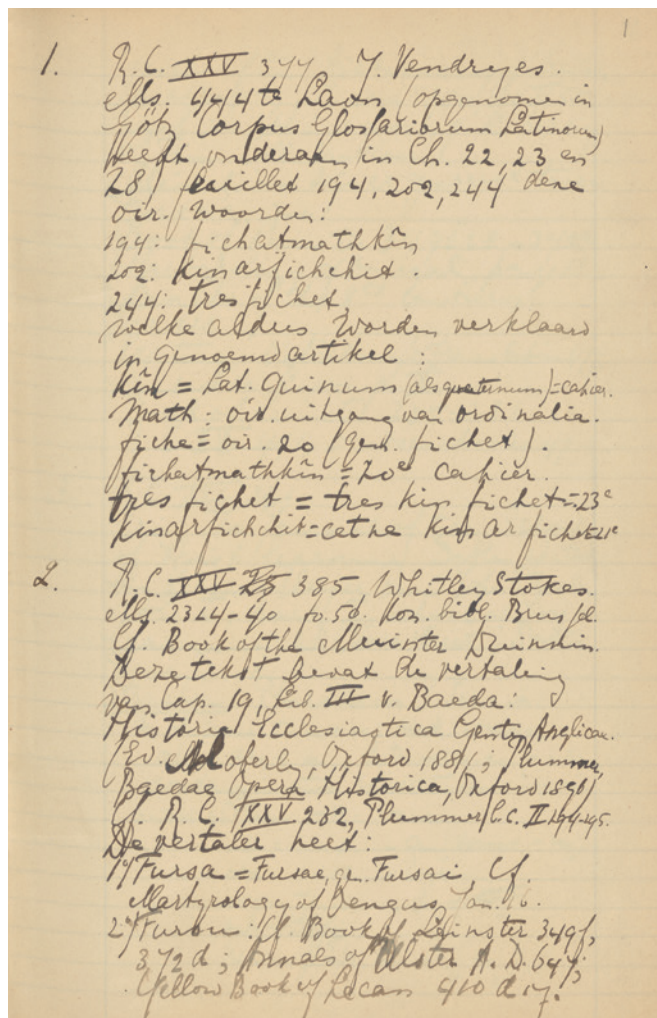 1
1. R.C. XXV 377 J. Vendryes.
Ms. 444 te Laon (opgenomen in
Götz Corpus Glossariorum Latinorum)
heeft onderaan in Ch. 22, 23 en
28, feuillet 194, 202, 244 deze
oir. woorden:
194: fichatmathkîn
202: kinarfichchit.
244: tresfichet,
welke aldus worden verklaard
in genoemd artikel:
kîn = Lat. Quinum (als quaternum) = cahier.
Math: oir. uitgang van ordinalia.
fiche = oir. 20 (gen. fichet).
fichatmathkîn = 20e cahier.
tres fichet = tres kin fichet = 23e
kinarfichchit = cetne kin ar fichet = 21e
2. R.C. XXV 385, Whitley Stokes.
Ms. 2324-40 fo. 50. Kon. bibl. Brussel.
Cf. Book of the
Deze tekst bevat de vertaling
van Cap. 19, Lib. III v. Baeda:
Historia Ecclesiastica Gentis Anglican.
(Ed. Moberly, Oxford 1881; Plummer,
Baedae Opera Historica, Oxford 1896)
Cf. R.C. XXV 232, Plummer l.c. II
De vertaler heet:
1°) Fursa = Fursae, gen. Fursai, Cf.
Martyrology of Oengus, Jan. 16.
2°) Furou: Cf. Book of Leinster 349f,
372 d; Annals of Ulster A.D. 647;
Yellow Book of Lecan 410 d 17.